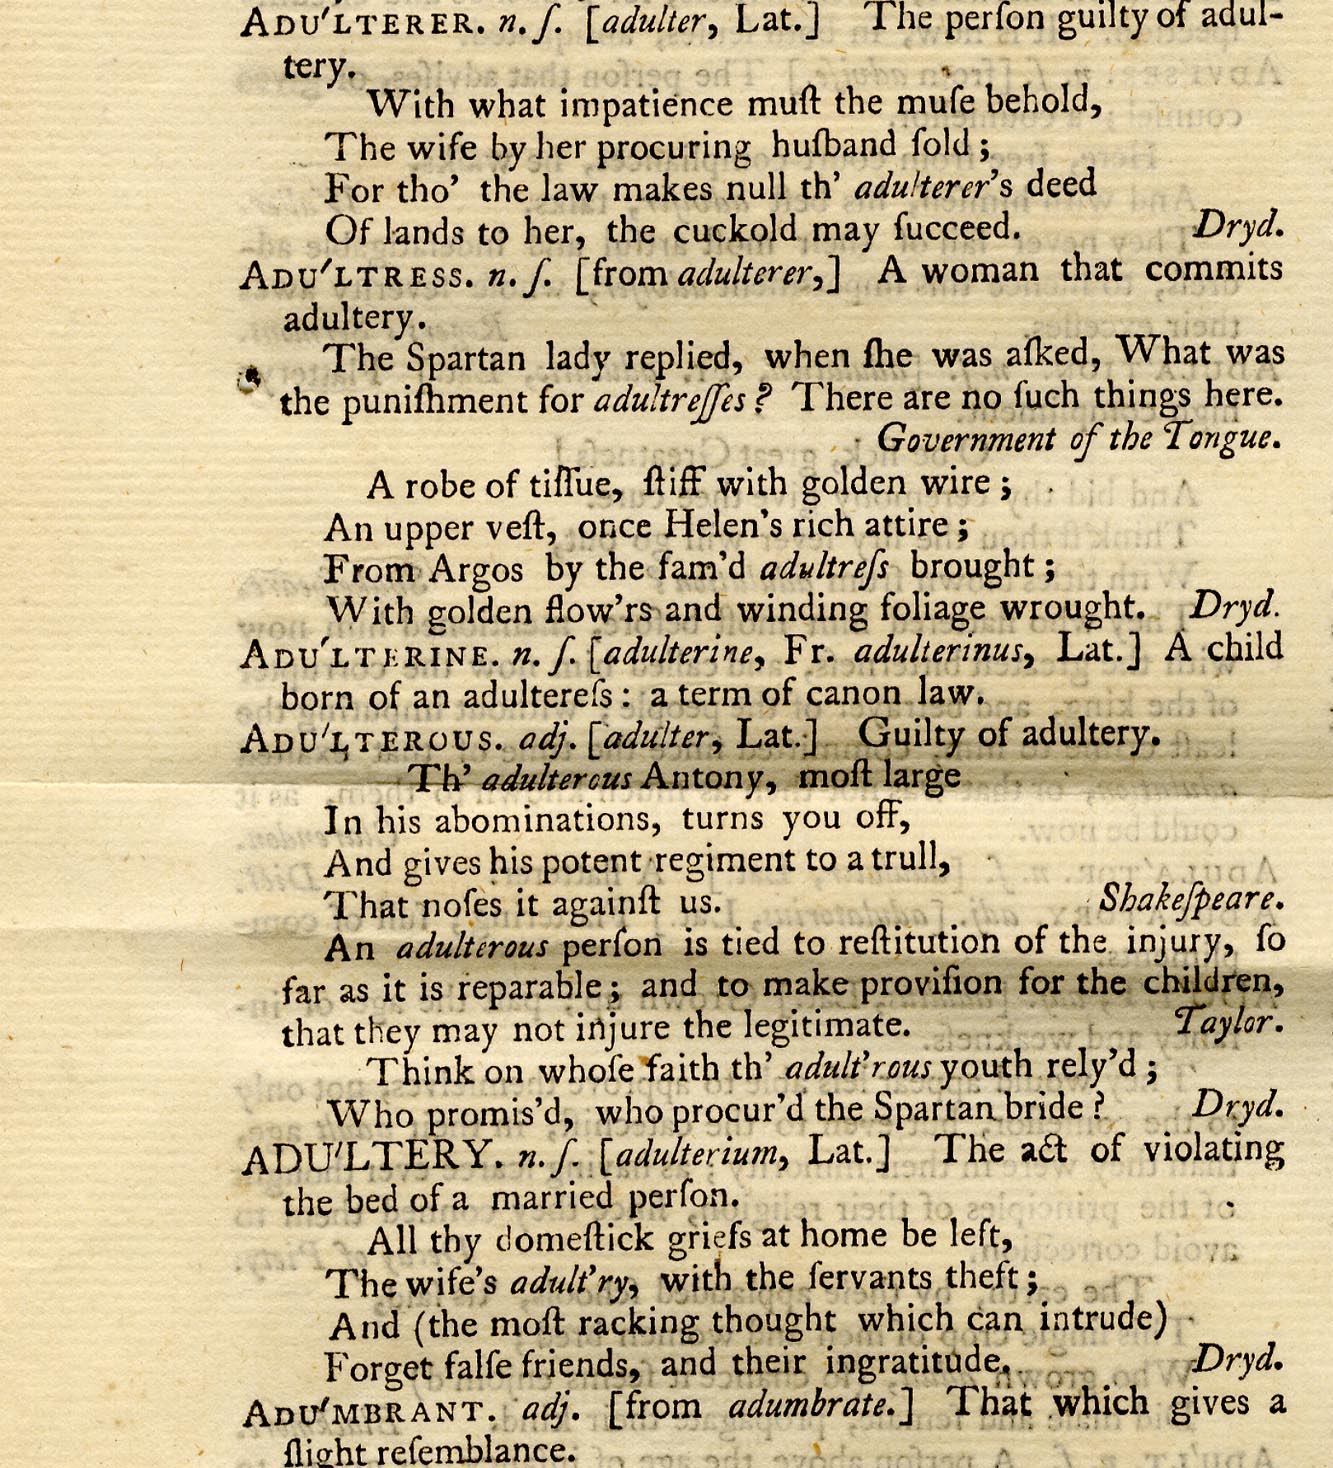 ADU'LTERER. n. ſ. [adulter, Lat.] The perſon guilty of adul-
tery.
With what impatience muſt the muſe behold,
The wife by her procuring huſband ſold;
For tho' the law makes null th' adulterer's deed
Of lands to her, the cuckold may ſucceed. Dryd.
ADU'LTRESS. n. ſ. [from adulterer,] A woman that commits
adultery.
The Spartan lady replied, when ſhe was aſked, What was
the puniſhment for adultreſſes? There are no ſuch things here.
Government of the Tongue.
A robe of tiſſue, ſtiff with golden wire;
An upper veſt, once Helen's rich attire;
From Argos by the fam'd adultreſs brought;
With golden flow'rs and winding foliage wrought. Dryd.
ADU'LTERINE. n. ſ. [adulterine, Fr. adulterinus, Lat.] A child
born of an adultereſs: a term of canon law.
ADU'LTEROUS. adj. [adulter, Lat.] Guilty of adultery.
Th' adulterous Antony, moſt large
In his abominations, turns you off,
And gives his potent regiment to a trull,
That noſes it againſt us. Shakeſpeare.
An adulterous perſon is tied to reſtitution of the injury, ſo
far as it is reparable; and to make proviſion for the children,
that they may not injure the legitimate. Taylor.
Think on whoſe faith th' adult'rous youth rely'd;
Who promis'd, who procur'd the Spartan bride? Dryd.
ADU'LTERY. n. ſ. [adulterium, Lat.] The act of violating
the bed of a married perſon.
All thy domeſtick griefs at home be left,
The wife's adult'ry, with the ſervants theft;
And (the moſt racking thought which can intrude)
Forget falſe friends, and their ingratitude. Dryd.
ADU'MBRANT. adj. [from adumbrate.] That which gives a
ſlight reſemblance.